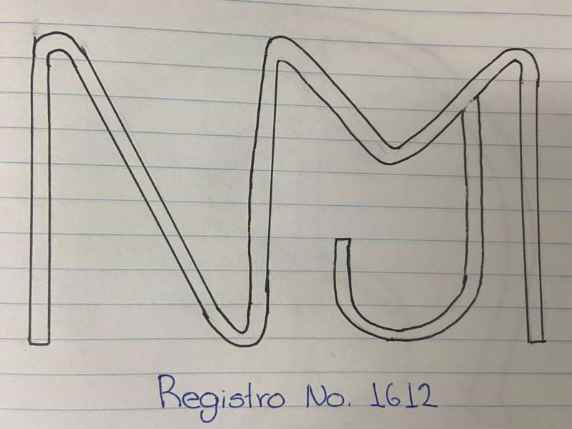 NMJ
Registro No. 1612